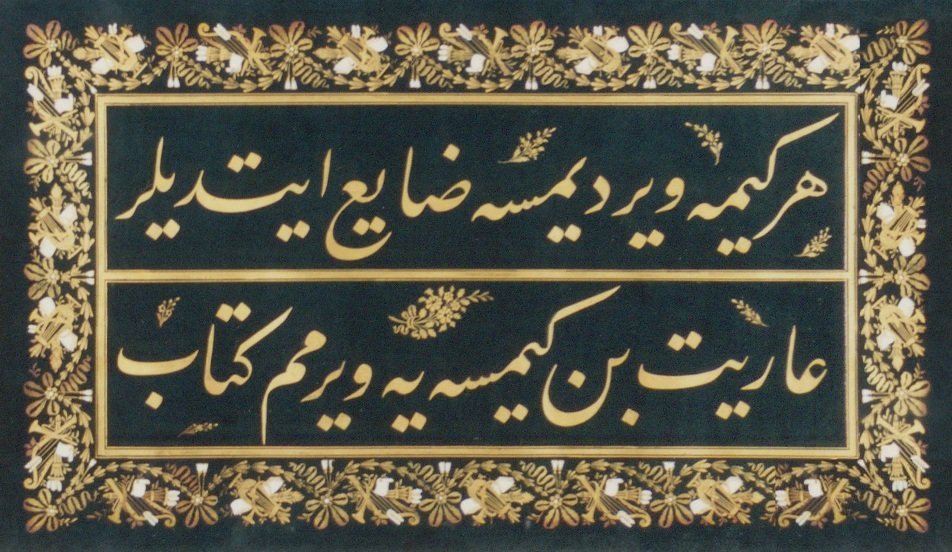 هر كیمه ویردیمسه ضایع ایتدیلر
عاریت بن كیمسه یه ویرمم كتاب